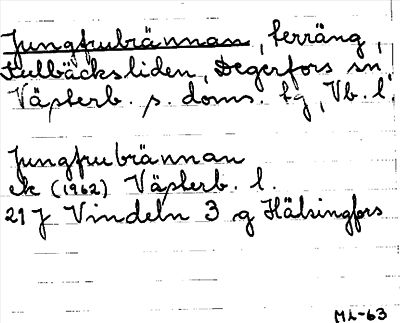 Jungfrubrännan, terräng,
Kullbäcksliden, Degerfors sn
Västerb. s. doms. tg, Vb. l.
Jungfrubrännan
ek (1962) Västerb. l.
21 J Vindeln 3 g Hälsingfors
ML-63